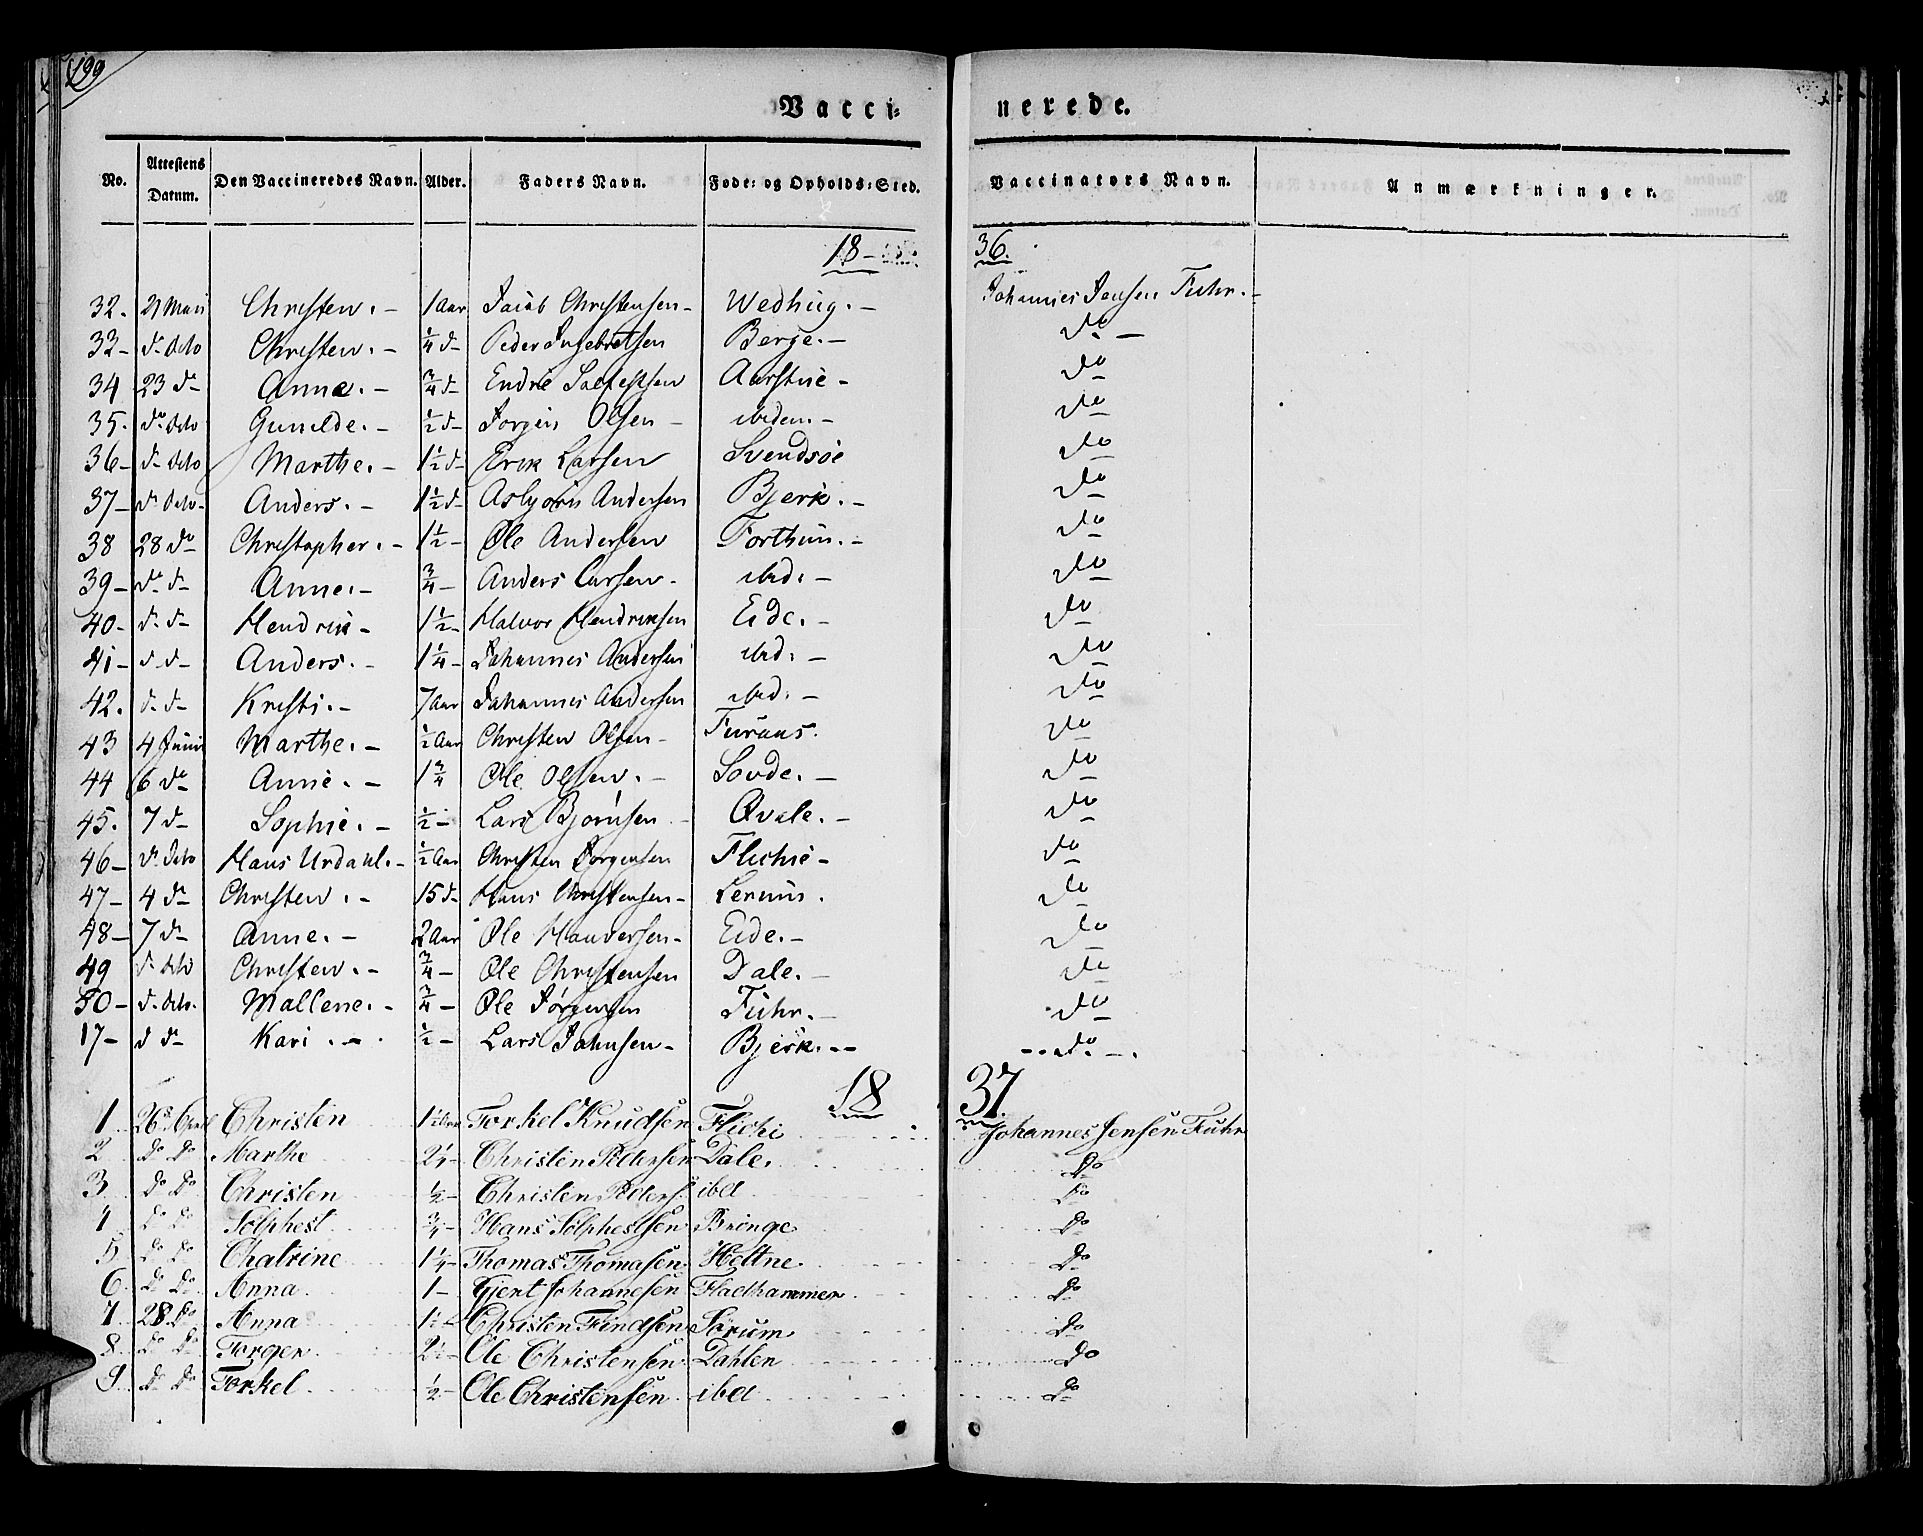 199
Vacci= nerede.
No. Attestens Datum. Den Vaccineredes Navn. Alder. Faders Navn. Føde= og Opholds=Sted. Vaccinators Navn. Anmærkninger.
18- 36.
32. 21 Maii Christen. - 1 Aar Jacob Christensen - Wedhug. - Johannes Jensen Fuhr. -
33 - do dito Christen. - 1/4 d- Peder Ingebretsen Berge. - do -
34 23 do Anne. - 3/4 d- Endre Aarstue - do
35. do dito Gunilde. - 1/2 d- Jørgen Olsen - ibidem. - do
36 - do dito Marthe. - 1 1/2 d- Erik Larsen Svendsøe do
37 - do dito - Anders. - 1 1/2 d- Asbjørn Andersen Bjerk. - do
38 28 do Christopher. - 1 1/2 - Ole Andersen Forthun. - do
39 - do do Anne. - 3/4 - Anders Larsen - ibid. - do
40 - do do Hendrik - 1 1/2 - Halvor Hendriksen Eide. - do
41 - do do Anders. - 1 1/4 - Johannes Andersen ibid. - do
42. do do Kristi. - 7 Aar Johannes Andersen ibid. - do
43 4 Junii Marthe. - 1/2 Aar Christen Olsen - Furaas. do
44 6 do Anne. - 1 3/4 Ole Olsen. - Sovde. - do
45. 7 do Sophie. - 1/2 - Lars Bjørnsen - Qvale. - do
46 - do dito Hans Urdahl. - 1/2 Aar Christen Jørgensen Flichie - do
47 - 4 do Christen. - 15 d- Hans Christensen - Lerum. do
48 - 7 do Anne. - 2 Aar Ole Eide. - do
49 do dito Christen. - 3/4 - Ole Christensen Dale. - do
50 - do dito. Mallene. - 3/4 - Ole Jørgensen Fuhr. - do
17 - d do Kari. - 1/2 - Lars Johnsen - Bjerk. - - do. -
18 37.
1 26 April Christen 1 1/2 Aar Torkel Knudsen Flichi Johannes Jensen Fuhr
2 Do Do Marthe 2 1/4 - Christen Pedersen Dale. Do
3 Do Do Christen 1/2 - Christen Peders. ibd Do
4 Do Do Sølphest 3/4 - Hans Sølphestsen Bringe Do
5 Do Do Chatrine 1 1/4 - Thomas Thomasen Heltne Do
6 Do Do Anna 1 - Gjert Johannesen Flaethammer Do
7 28 Do Anna 1 1/2 - Christen Findsen Sørum Do
8 Do Do Torger 2 1/2 - Ole Christensen Dahlen Do
9 Do Do Torkel 1/2 - Ole Christensen ibd Do